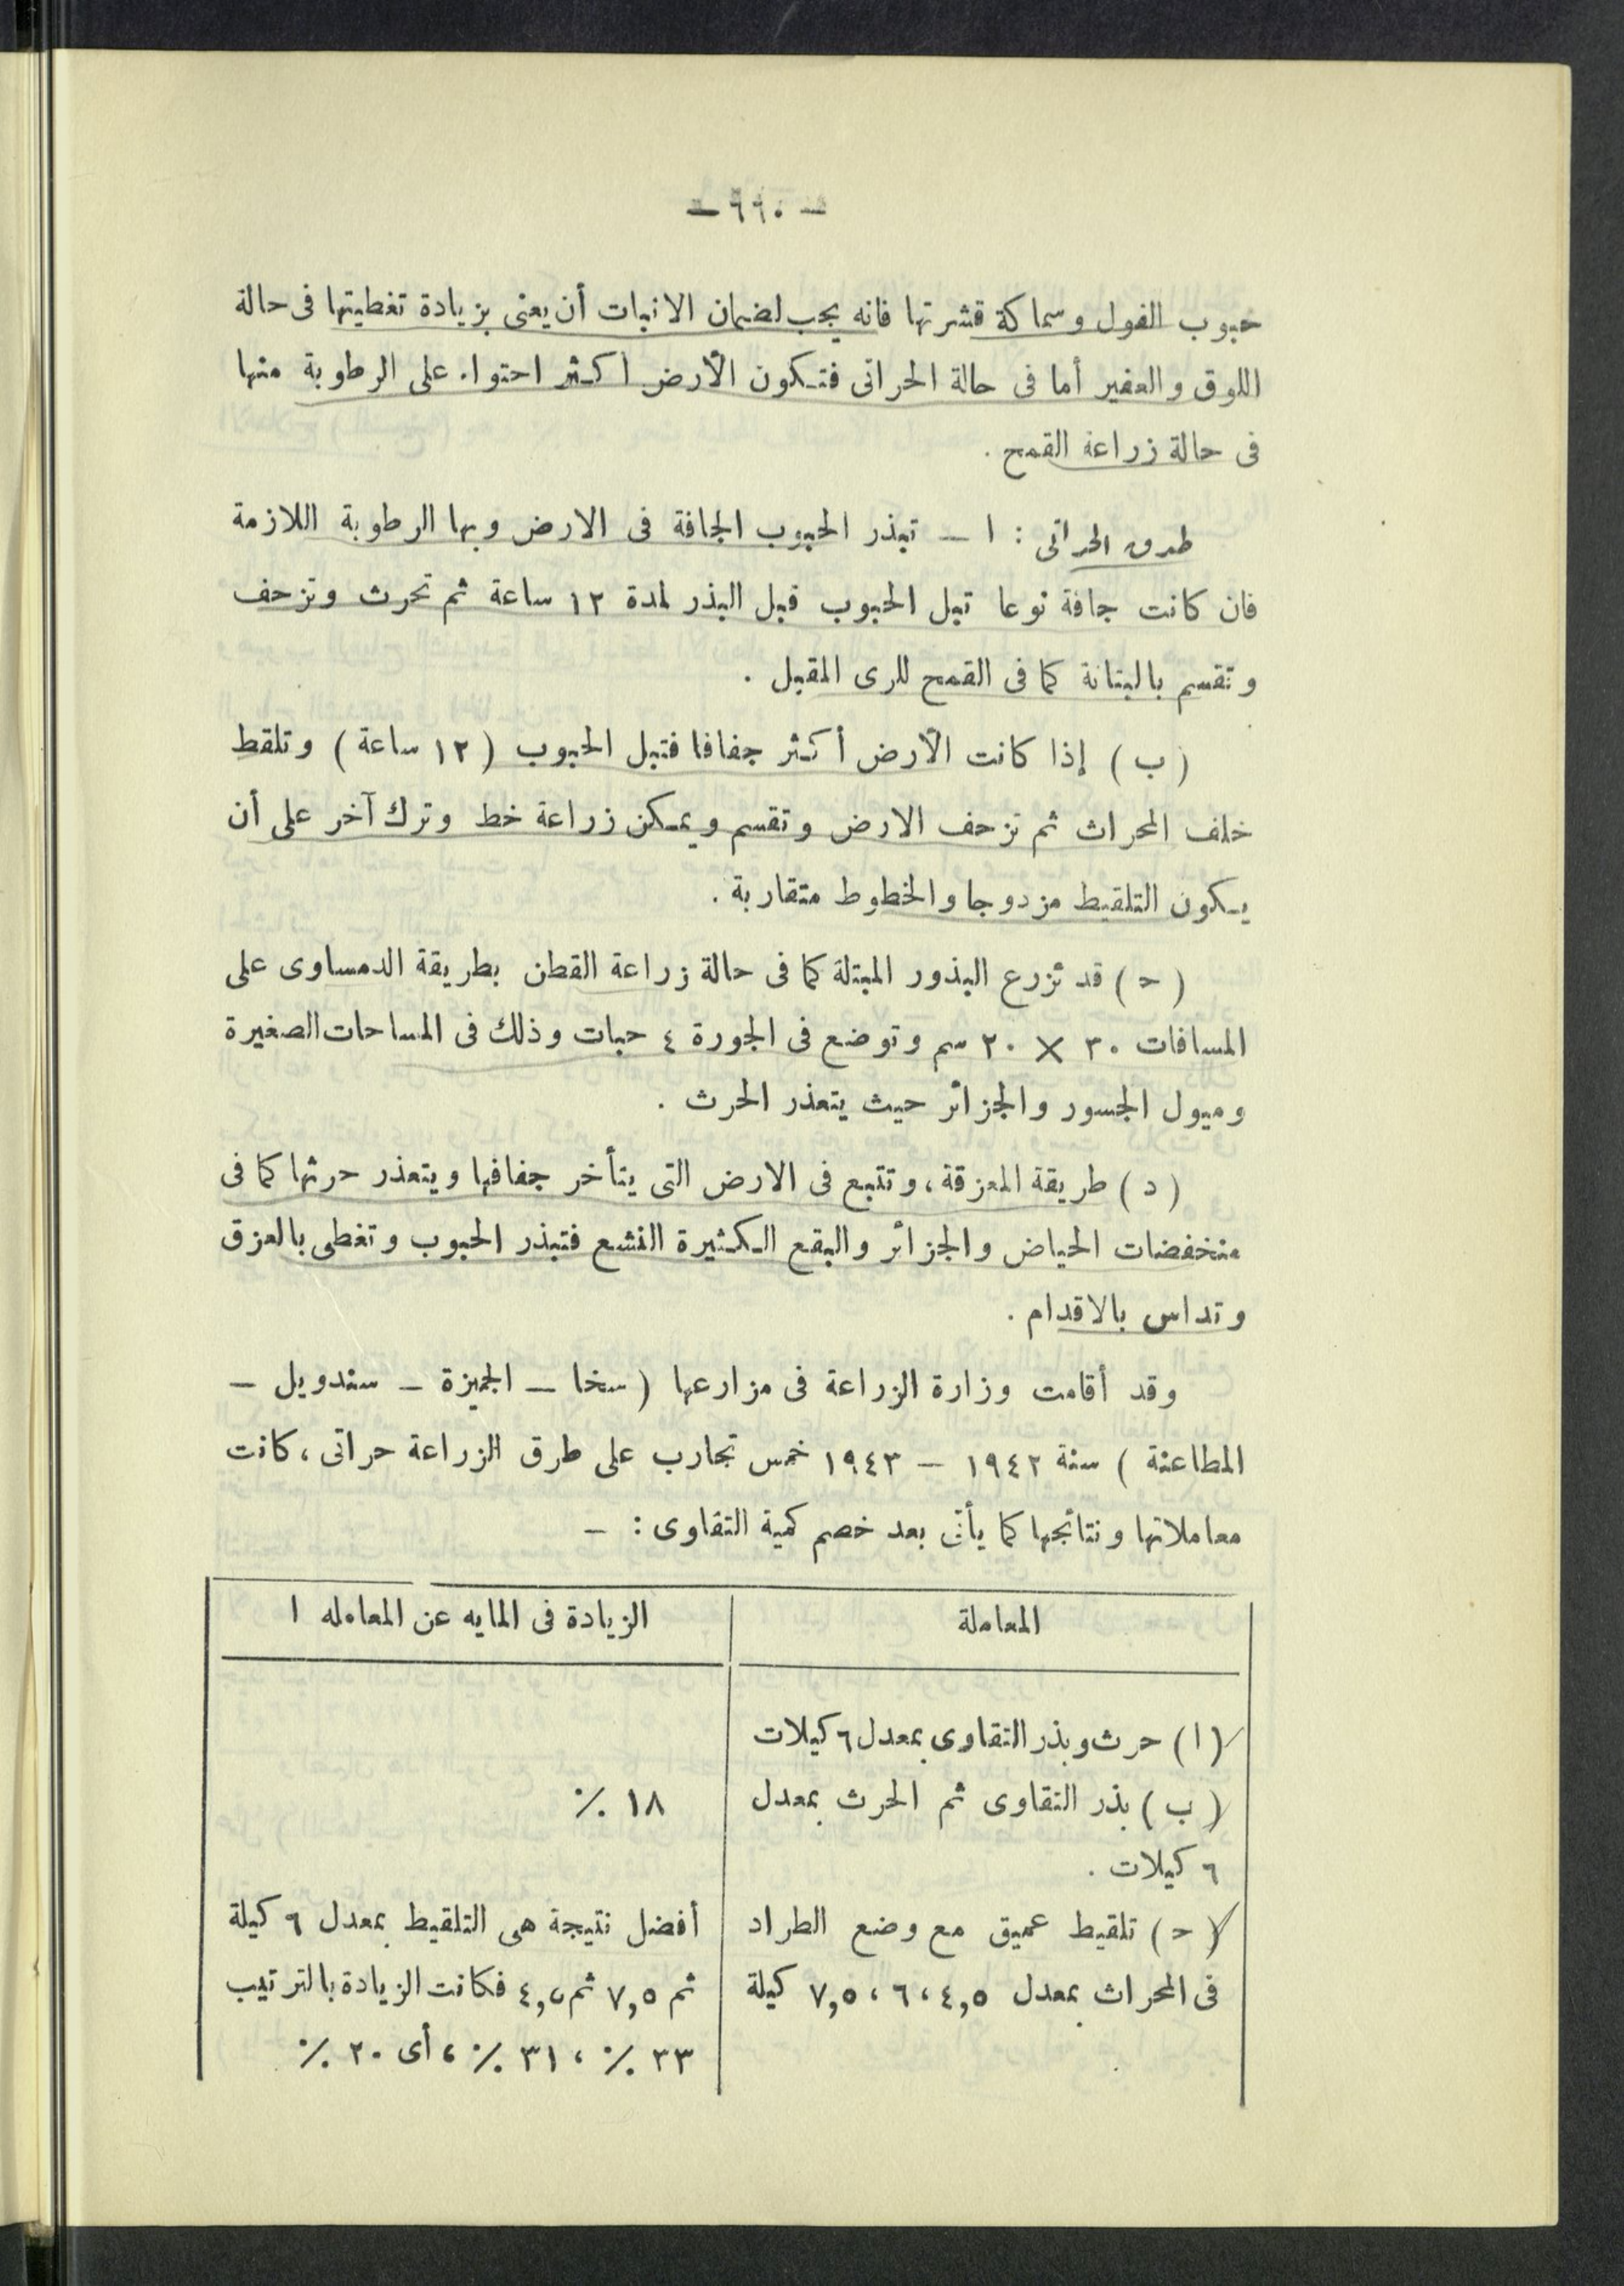 — ٦٦٠ —
حبوب الفول وسماكة قشرتها فانه يجب لضمان الانبات أن يعنى بزيادة تغطيتها فى حالة
اللوق والعفير أما فى حالة الحراثى فتكون الأرض اكثر احتواء على الرطوبة منها
فى حالة زراعة القمح .
طرق الحراثى : ا — تبذر الحبوب الجافة فى الارض وبها الرطوبة اللازمة
فان كانت جافة نوعا تبل الحبوب قبل البذر لمدة ١٢ ساعة ثم تحرث وتزحف
وتقسم بالبتانة كما فى القمح للرى المقبل .
( ب ) إذا كانت الأرض أكثر جفافا فتبل الحبوب ( ١٢ ساعة ) وتلقط
خلف المحراث ثم تزحف الارض وتقسم ويمكن زراعة خط وترك آخر على أن
يكون التلقيط مزدوجا والخطوط متقاربة .
( ح ) قد تزرع البذور المبتلة كما فى حالة زراعة القطن بطريقة الدمساوى على
المسافات ٣٠ × ٢٠ سم وتوضع فى الجورة ٤ حبات وذلك فى المساحات الصغيرة
وميول الجسور والجزائر حيث يتعذر الحرث .
( د ) طريقة المعزقة ، وتتبع فى الارض التى يتأخر جفافها ويتعذر حرثها كما فى
منخفضات الحياض والجزائر والبقع الكثيرة النشع فتبذر الحبوب وتغطى بالعزق
وتداس بالاقدام .
وقد أقامت وزارة الزراعة فى مزارعها ( سخا — الجميزة — سندويل —
المطاعنة ) سنة ١٩٤٢ — ١٩٤٣ خمس تجارب على طرق الزراعة حراثى ، كانت
معاملاتها ونتائجها كما يأتى بعد خصم كمية التقاوى : —
المعاملة
الزيادة فى المايه عن المعامله ا
( ا ) حرث وبذر التقاوى بمعدل ٦ كيلات
( ب ) بذر التقاوى ثم الحرث بمعدل
٦ كيلات .
١٨ ٪
( ح ) تلقيط عميق مع وضع الطراد
فى المحراث بمعدل ٤,٥ ، ٦ ، ٧,٥ كيلة
أفضل نتيجة هى التلقيط بمعدل ٦ كيلة
ثم ٧,٥ ثم ٤,٥ فكانت الزيادة بالترتيب
٣٣ ٪ ، ٣١ ٪ ، أى ٢٠ ٪